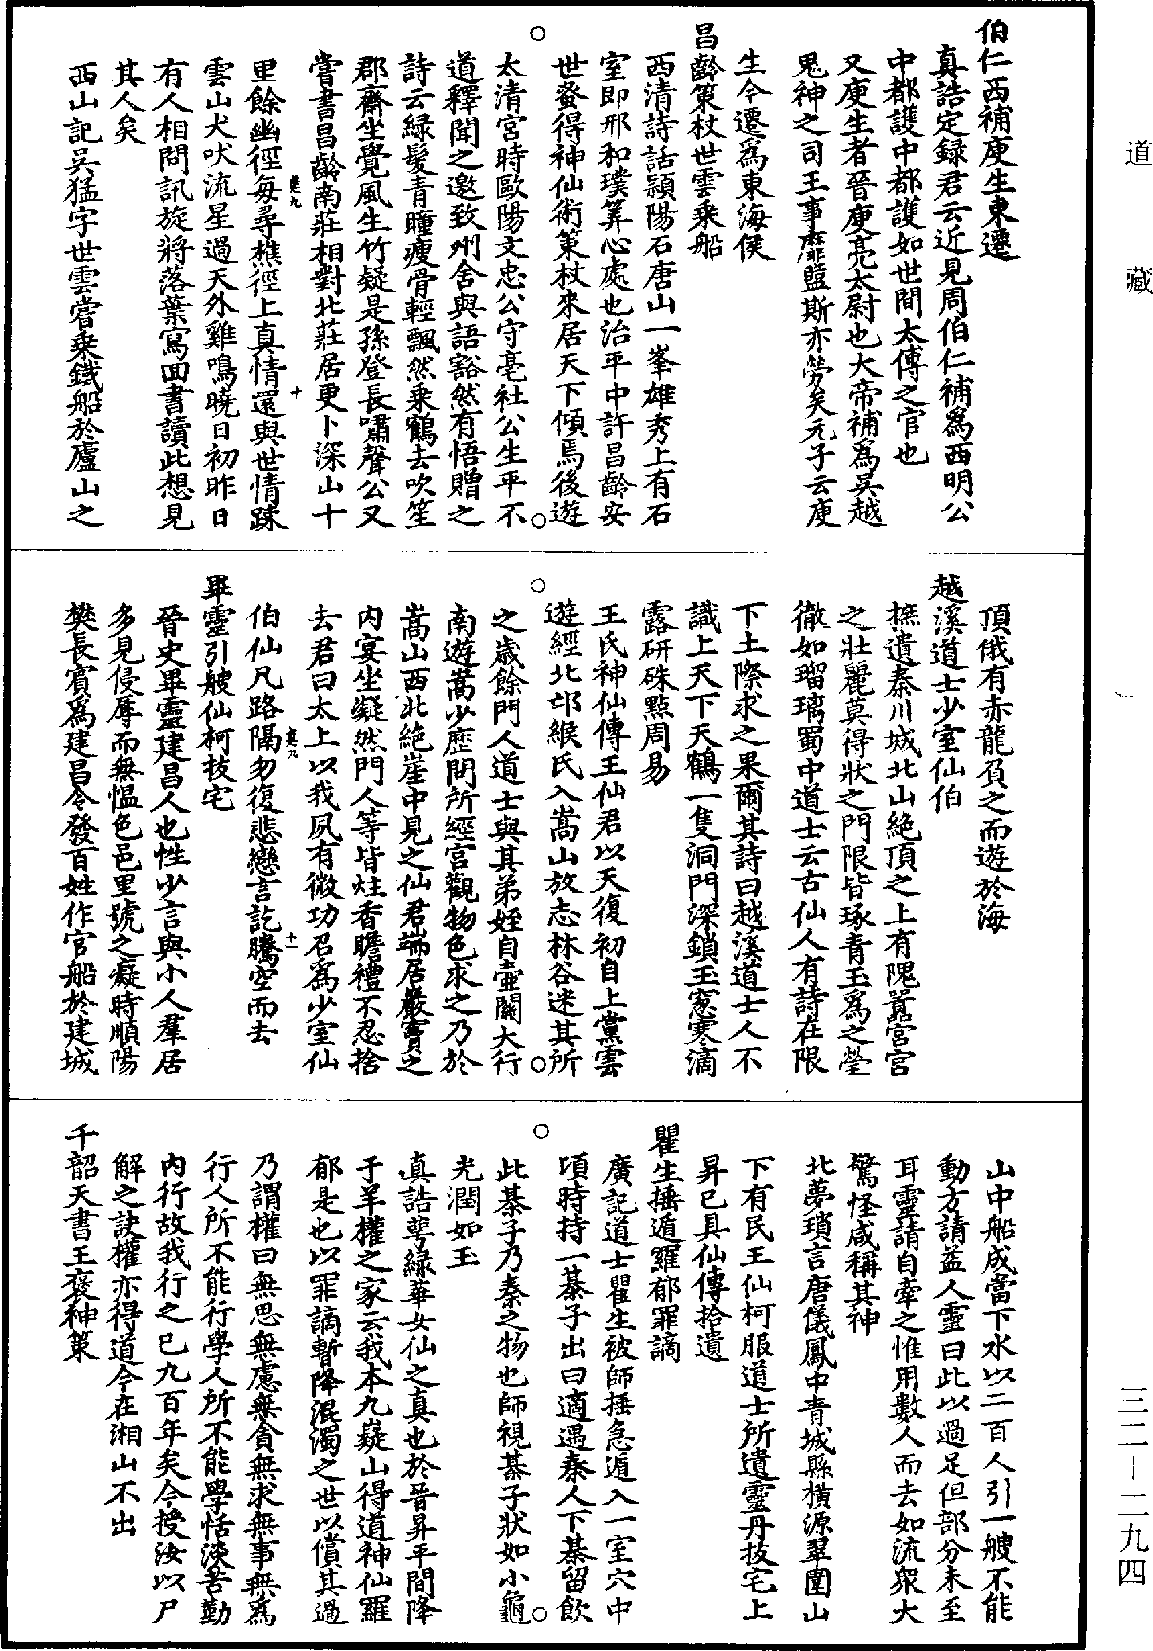 伯仁西補庾生東遷
真誥定録君云近見周伯仁補爲西明公
中都護中都護如世間太傅之官也
又庾生者晉庾亮太尉也大帝補爲吳越
鬼神之司王事靡盬斯亦勞矣元子云庾
生今遷爲東海侯
昌齡策杖世雲乘船
西清詩話潁陽石唐山一峯雄秀上有石
室即邢和璞筭心處也治平中許昌齡安
世蚤得神仙術策杖來居天下傾焉後遊
太清宮時歐陽文忠公守亳社公生平不
道釋聞之邀致州舍與語豁然有悟贈之
詩云綠髮青瞳瘦骨輕飄然乘鶴去吹笙
郡齋坐覺風生竹疑是孫登長嘯聲公又
嘗書昌齡南莊相對北莊居更卜深山十
里餘幽徑每尋樵徑上真情還與世情踈
雲山犬吠流星過天外雞鳴曉日初昨日
有人相問訊旋將落葉寫回書讀此想見
其人矣
西山記吳猛字世雲嘗乘鐵船於廬山之
頂俄有赤龍負之而遊於海
越溪道士少室仙伯
樵遺秦川城北山絶頂之上有隗囂宮宮
之壯麗莫得狀之門限皆琢青玉爲之瑩
徹如瑠璃蜀中道士云古仙人有詩在限
下土際求之果爾其詩曰越溪道士人不
識上天下天鶴一隻洞門深鎖玉窻寒滴
露研硃點周易
王氏神仙傳王仙君以天復初自上黨雲
遊經北邙緱氏入嵩山放志林谷迷其所
之歲餘門人道士與其弟姪自壺關大行
南遊嵩少歷問所經宮觀物色求之乃於
嵩山西北絶崖中見之仙君端居巖竇之
内宴坐凝然門人等皆炷香瞻禮不忍捨
去君曰太上以我夙有微功召爲少室仙
伯仙凡路隔勿復悲戀言訖騰空而去
畢靈引艘仙柯拔宅
晉史畢靈建昌人也性少言與小人羣居
多見侵辱而無愠色邑里號之癡時順陽
樊長賓爲建昌令發百姓作官船於建城
山中船成當下水以二百人引一艘不能
動方請益人靈曰此以過足但部分未至
耳靈請自牽之惟用數人而去如流衆大
驚怪咸稱其神
北夢瑣言唐儀鳳中青城縣横源翠圍山
下有民王仙柯服道士所遺靈丹拔宅上
昇已具仙傳拾遺
瞿生捶遁羅郁罪謫
廣記道士瞿生被師捶急遁入一室穴中
頃時持一棊子出曰適遇秦人下棊留飲
此棊子乃秦之物也師視棊子狀如小龜
光潤如玉
真誥萼綠華女仙之真也於晉昇平間降
于羊權之家云我本九嶷山得道神仙羅
郁是也以罪謫暫降混濁之世以償其過
乃謂權曰無思無慮無貪無求無事無爲
行人所不能行學人所不能學恬淡苦勤
内行故我行之已九百年矣今授汝以尸
解之訣權亦得道今在湘山不出
千韶天書王褒神策
道藏
三二—二九四